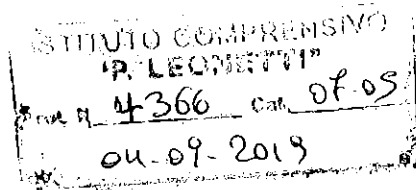 ISTITUTO COMPRENSIVO
"P. LEONETTI"
Prot. N. 4366 Cat. 07-05
04-09-2019